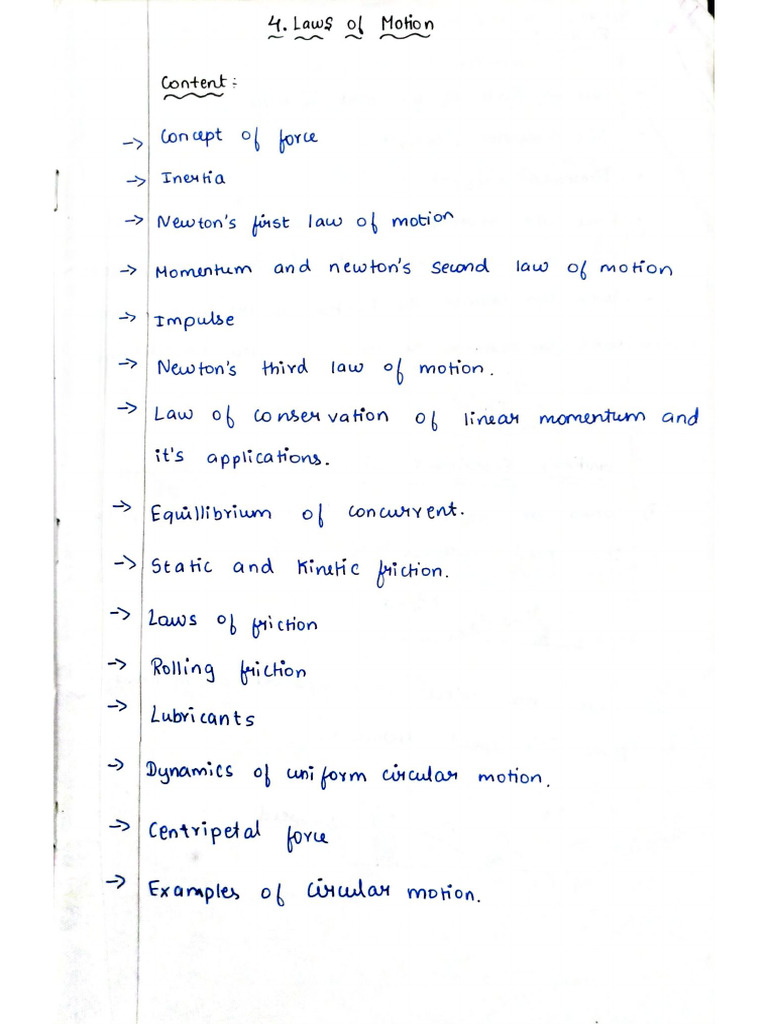 4. Laws of Motion
Content:
-> Concept of force
-> Inertia
-> Newton's first law of motion
-> Momentum and newton's second law of motion
-> Impulse
-> Newton's third law of motion.
-> Law of conservation of linear momentum and
it's applications.
-> Equillibrium of concurrent.
-> Static and Kinetic friction.
-> Laws of friction
-> Rolling friction
-> Lubricants
-> Dynamics of uniform circular motion.
-> Centripetal force
-> Examples of circular motion.